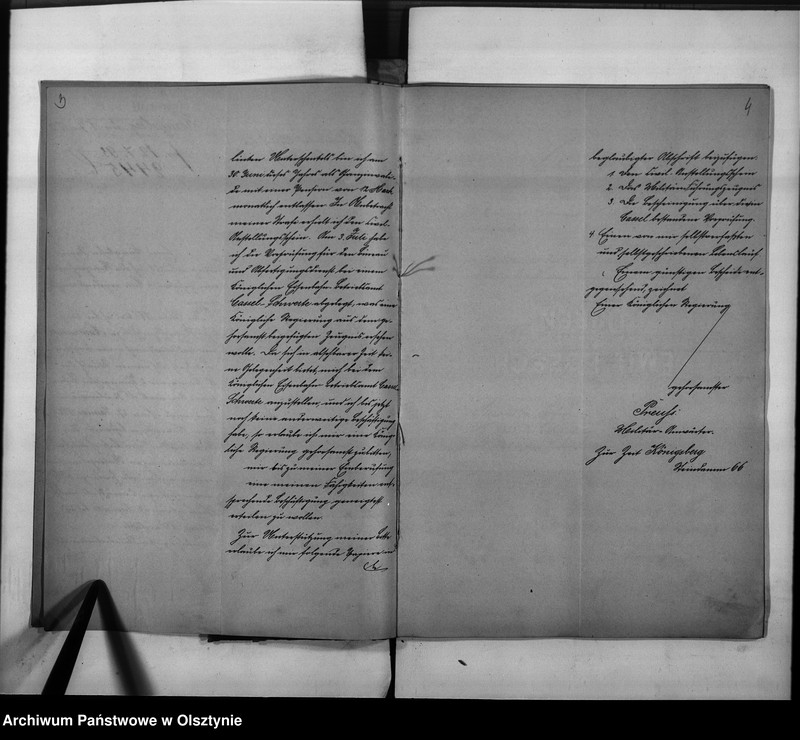 3
linken Unterschenkels bin ich am
30. Juni dieses Jahres als Ganzinvali-
de mit einer Pension von 12 Mark
monatlich entlassen. In Anbetracht
meiner Strafe erhielt ich den Civil-
Anstellungsschein. Am 3. Juli habe
ich die Vorprüfung für den Bureau
und Abfertigungsdienst bei einem
Königlichen Eisenbahn Betriebsamt
Cassel-Schwerte abgelegt, was eine
Königliche Regierung aus dem ge-
horsamst beigefügten Zeugnis ersehen
wolle. Da sich in absehbarer Zeit kei-
ne Gelegenheit bietet, mich bei dem
Königlichen Eisenbahn Betriebsamt Cassel-
Schwerte anzustellen, und ich bis jetzt
noch keine anderweitige Beschäftigung
habe, so erlaube ich mir eine König-
liche Regierung gehorsamst zu bitten,
mir bis zu meiner Einberufung
eine meinen Fähigkeiten ent-
sprechende Beschäftigung geneigtest
erteilen zu wollen.
Zur Unterstützung meiner Bitte
erlaube ich mir folgende Papiere in
4
beglaubigter Abschrift beizufügen.
1 Den Civil-Anstellungsschein
2 Das Militärführungszeugnis
3 Die Bescheinigung über die in
Cassel bestandene Vorprüfung.
4 Einen von mir selbstverfassten
und selbstgeschriebenen Lebenslauf
Einem günstigen Bescheide ent-
gegensehend, zeichnet
Einer Königlichen Regierung
gehorsamster
Preuß
Militär-Anwärter.
Zur Zeit Königsberg
Steindamm 66
Archiwum Państwowe w Olsztynie